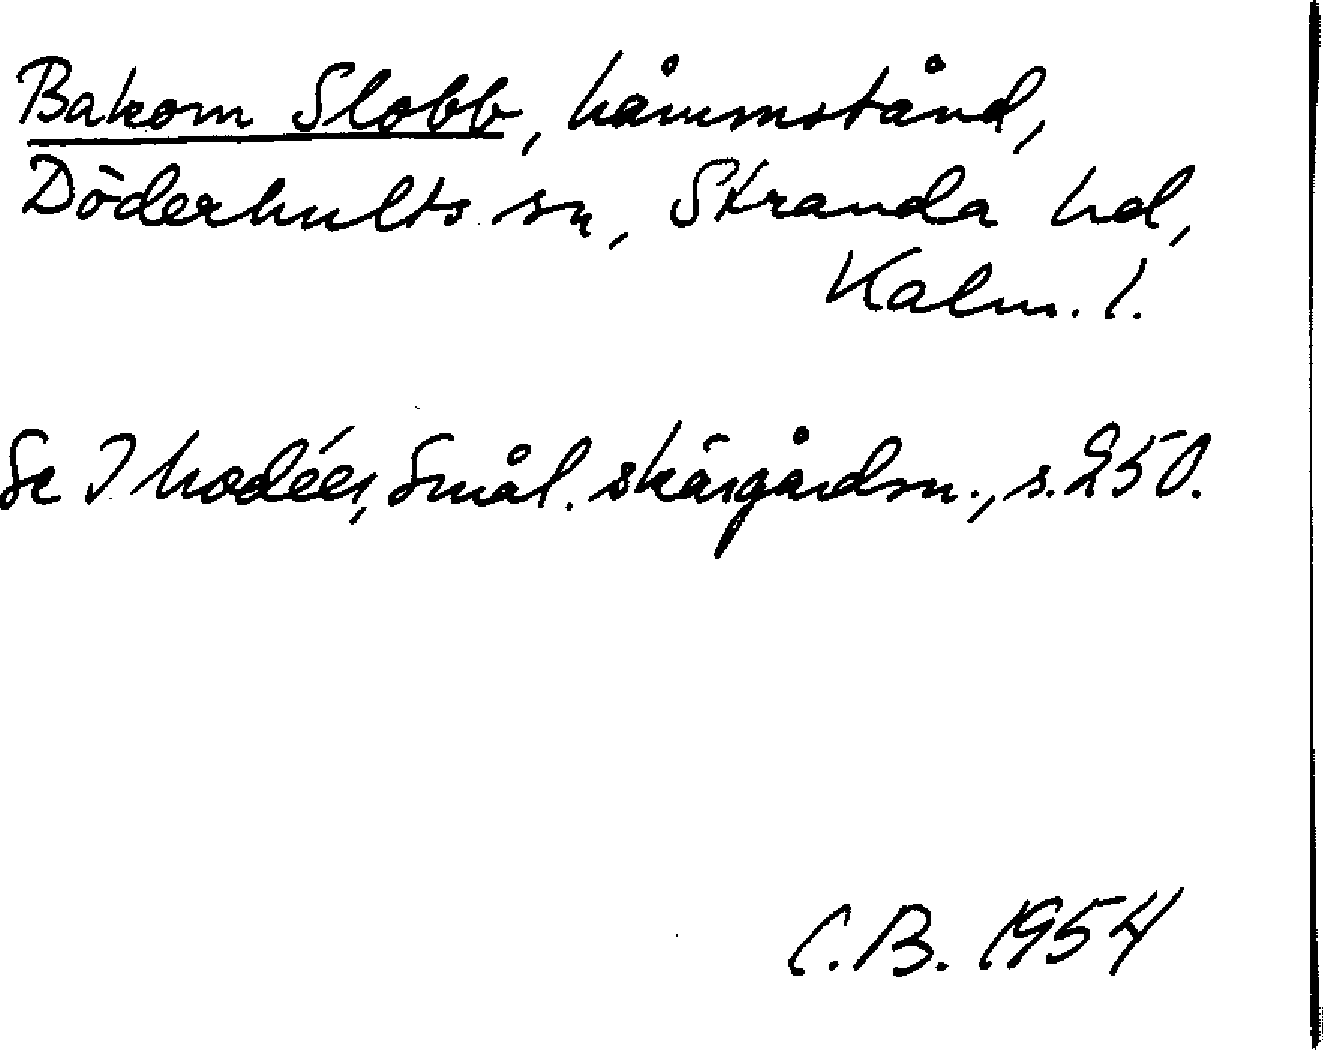 Bakom Slobb, håmmstånd,
Döderhults sn, Stranda hd,
Kalm. l.
Se I Modéer, Smål. skärgårdsn., s. 250.
C.B. 1954